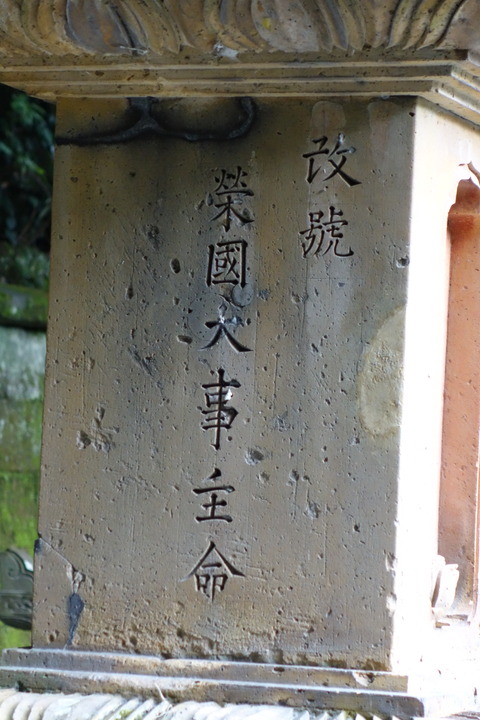 改號
榮國大事主命